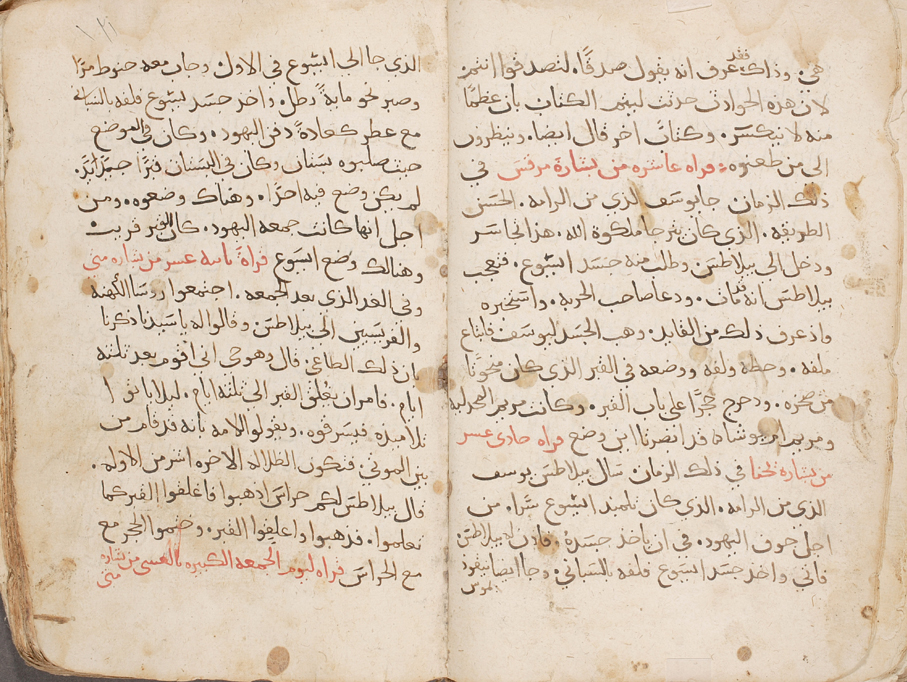 هي. وذاك فقد عرف انه يقول صدقًا. لتصدقوا انتم
لان هذه الحوادث حدثت ليتم الكتاب بان عظمًا
منه لا ينكسر. وكتاب اخر قال ايضا. وينظرون
الى من طعنوه: قراه عاشره من بشارة مرقس في
ذلك الزمان جا يوسف الذي من الرامه. الحسن
الطريقه. الذي كان يترجا ملكوة الله. هذا تجاسر
ودخل الى بيلاطس. وطلب منه جسد ايسوع. فتعجب
بيلاطس انه قد مات. ودعا صاحب الحربه. واستخبره
واذ عرف ذلك من القايد. وهب الجسد ليوسف فابتاع
ملفه. وحطه ولفه ووضعه في القبر الذي كان منحوتًا
من صخره. ودحرج حجرًا على باب القبر. وكانت مريم المجدليه
ومريم ام يوشاه قد ابصرتا اين وضع قراه حادى عشر
من بشارة لحنا في ذلك الزمان سال بيلاطس يوسف
الذي من الرامه. الذي كان تلميذ ايسوع سرًا. من
اجل خوف اليهود. في ان ياخذ جسدة. فاذن له بيلاطس
فاتي واخذ جسد ايسوع فلفه بالسباني. وجا ايضا نيقود
يموس
الذي جا الى ايسوع في الاول وجاب معه حنوط مرًا
وصبر نحو ماية رطل. واخذ جسد يسوع فلفه بالسباني
مع عطر كعادة دفن اليهود. وكان في الموضع
حيث صلبوه بستان وكان في البستان قبرًا جديدًا.
لم يكن وضع فيه احدًا. وهناك وضعوه. ومن
اجل انها كانت جمعه اليهود. كان القبر قريب
وهنالك وضع ايسوع قراة ثانيه عشر من بشاره متى
وفي الغد الذي بعد الجمعه. اجتمعوا روسا الكهنه
والفريسيين الى بيلاطس وقالوا له يا سيدنا ذكرنا
بان ذلك الطاغي قال وهو حي اني اقوم بعد ثلثة
ايام. فامر ان يغلق القبر الى ثلثة ايام. ليلا ياتوا
تلاميذه فيسرقوه. ويقولو للامه بأنه قد قام من
بين الموتي. فتكون الظلاله الاخره اشر من الاوله.
قال بيلاطس لكم حراس اذهبوا فاغلقوا القبر كما
تعلموا. فذهبوا واغلقوا القبر. وختموا الحجر مع
مع الحراس قراه ليوم الجمعه الكبيره بالعشى من بشارة
متى